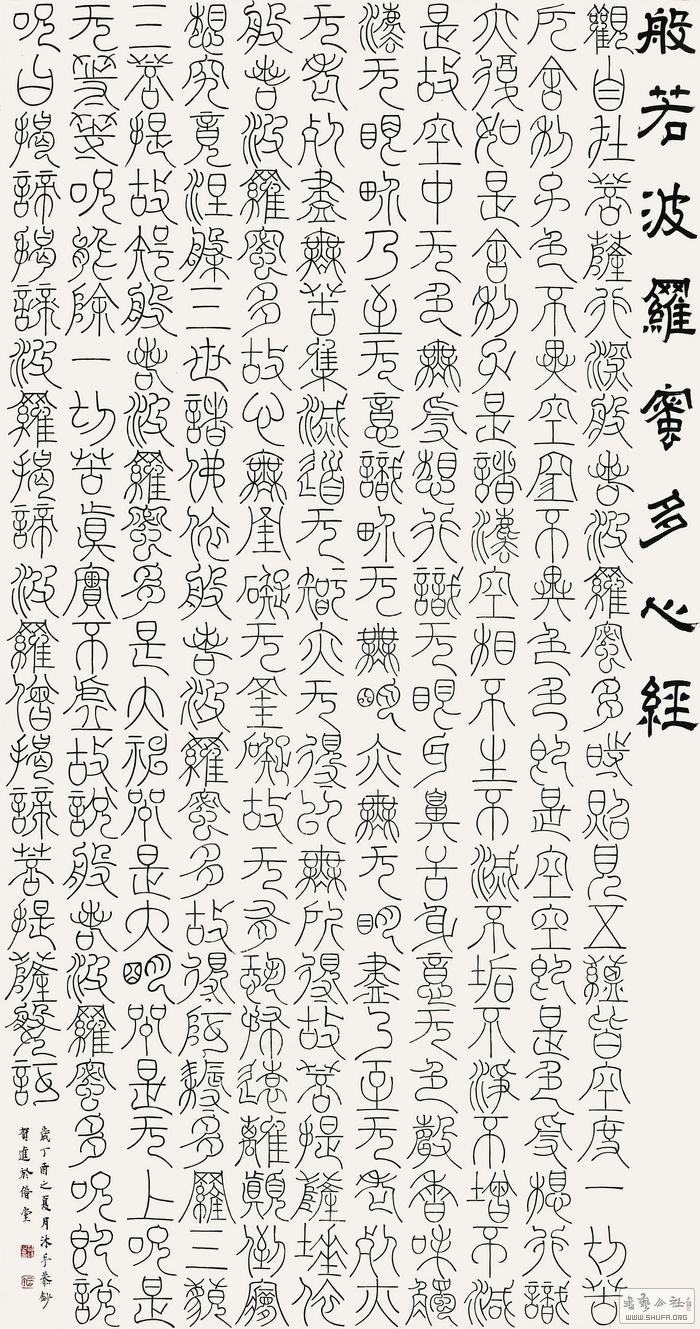 般若波羅蜜多心經
觀自在菩薩行深般若波羅蜜多時照見五蘊皆空度一切苦
厄舍利子色不異空空不異色色即是空空即是色受想行識
亦復如是舍利子是諸法空相不生不滅不垢不淨不增不減
是故空中无色無受想行識无眼耳鼻舌身意无色聲香味觸
法无眼界乃至无意識界无無明亦無无明盡乃至无老死亦
无老死盡無苦集滅道无智亦无得以無所得故菩提薩埵依
般若波羅蜜多故心無罣礙无罣礙故无有恐怖遠離顛倒夢
想究竟涅槃三世諸佛依般若波羅蜜多故得阿耨多羅三藐
三菩提故知般若波羅蜜多是大神咒是大明咒是无上咒是
无等等咒能除一切苦眞實不虛故說般若波羅蜜多咒即說
咒曰揭諦揭諦波羅揭諦波羅僧揭諦菩提薩婆訶
歲丁酉之夏月沐手恭鈔
進於脩堂
WWW.SHUFA.ORG